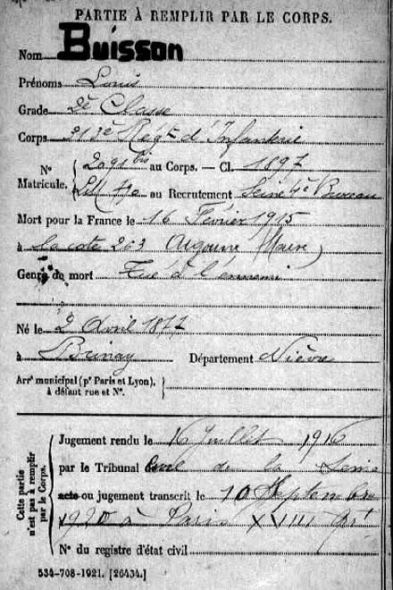 PARTIE À REMPLIR PAR LE CORPS.
Nom Buisson
Prénoms Louis
Grade 2e Classe
Corps 313e Regt d'Infanterie
No Matricule. 2091 bis au Corps. — Cl. 1897
au Recrutement Seine 4e Bureau
Mort pour la France le 16 Février 1915
à la cote 263 Argonne (Marne)
Genre de mort Tué à l'ennemi
Né le 2 Avril 1877
à Brinay Département Nièvre
Arrt municipal (pr Paris et Lyon),
à défaut rue et No.
Cette partie
n'est pas à remplir
par le Corps.
Jugement rendu le 16 Juillet 1916
par le Tribunal Civil de la Seine
acte ou jugement transcrit le 10 Septembre
1920 à Paris XVIII Art
No du registre d'état civil
534-708-1921. [26434.]